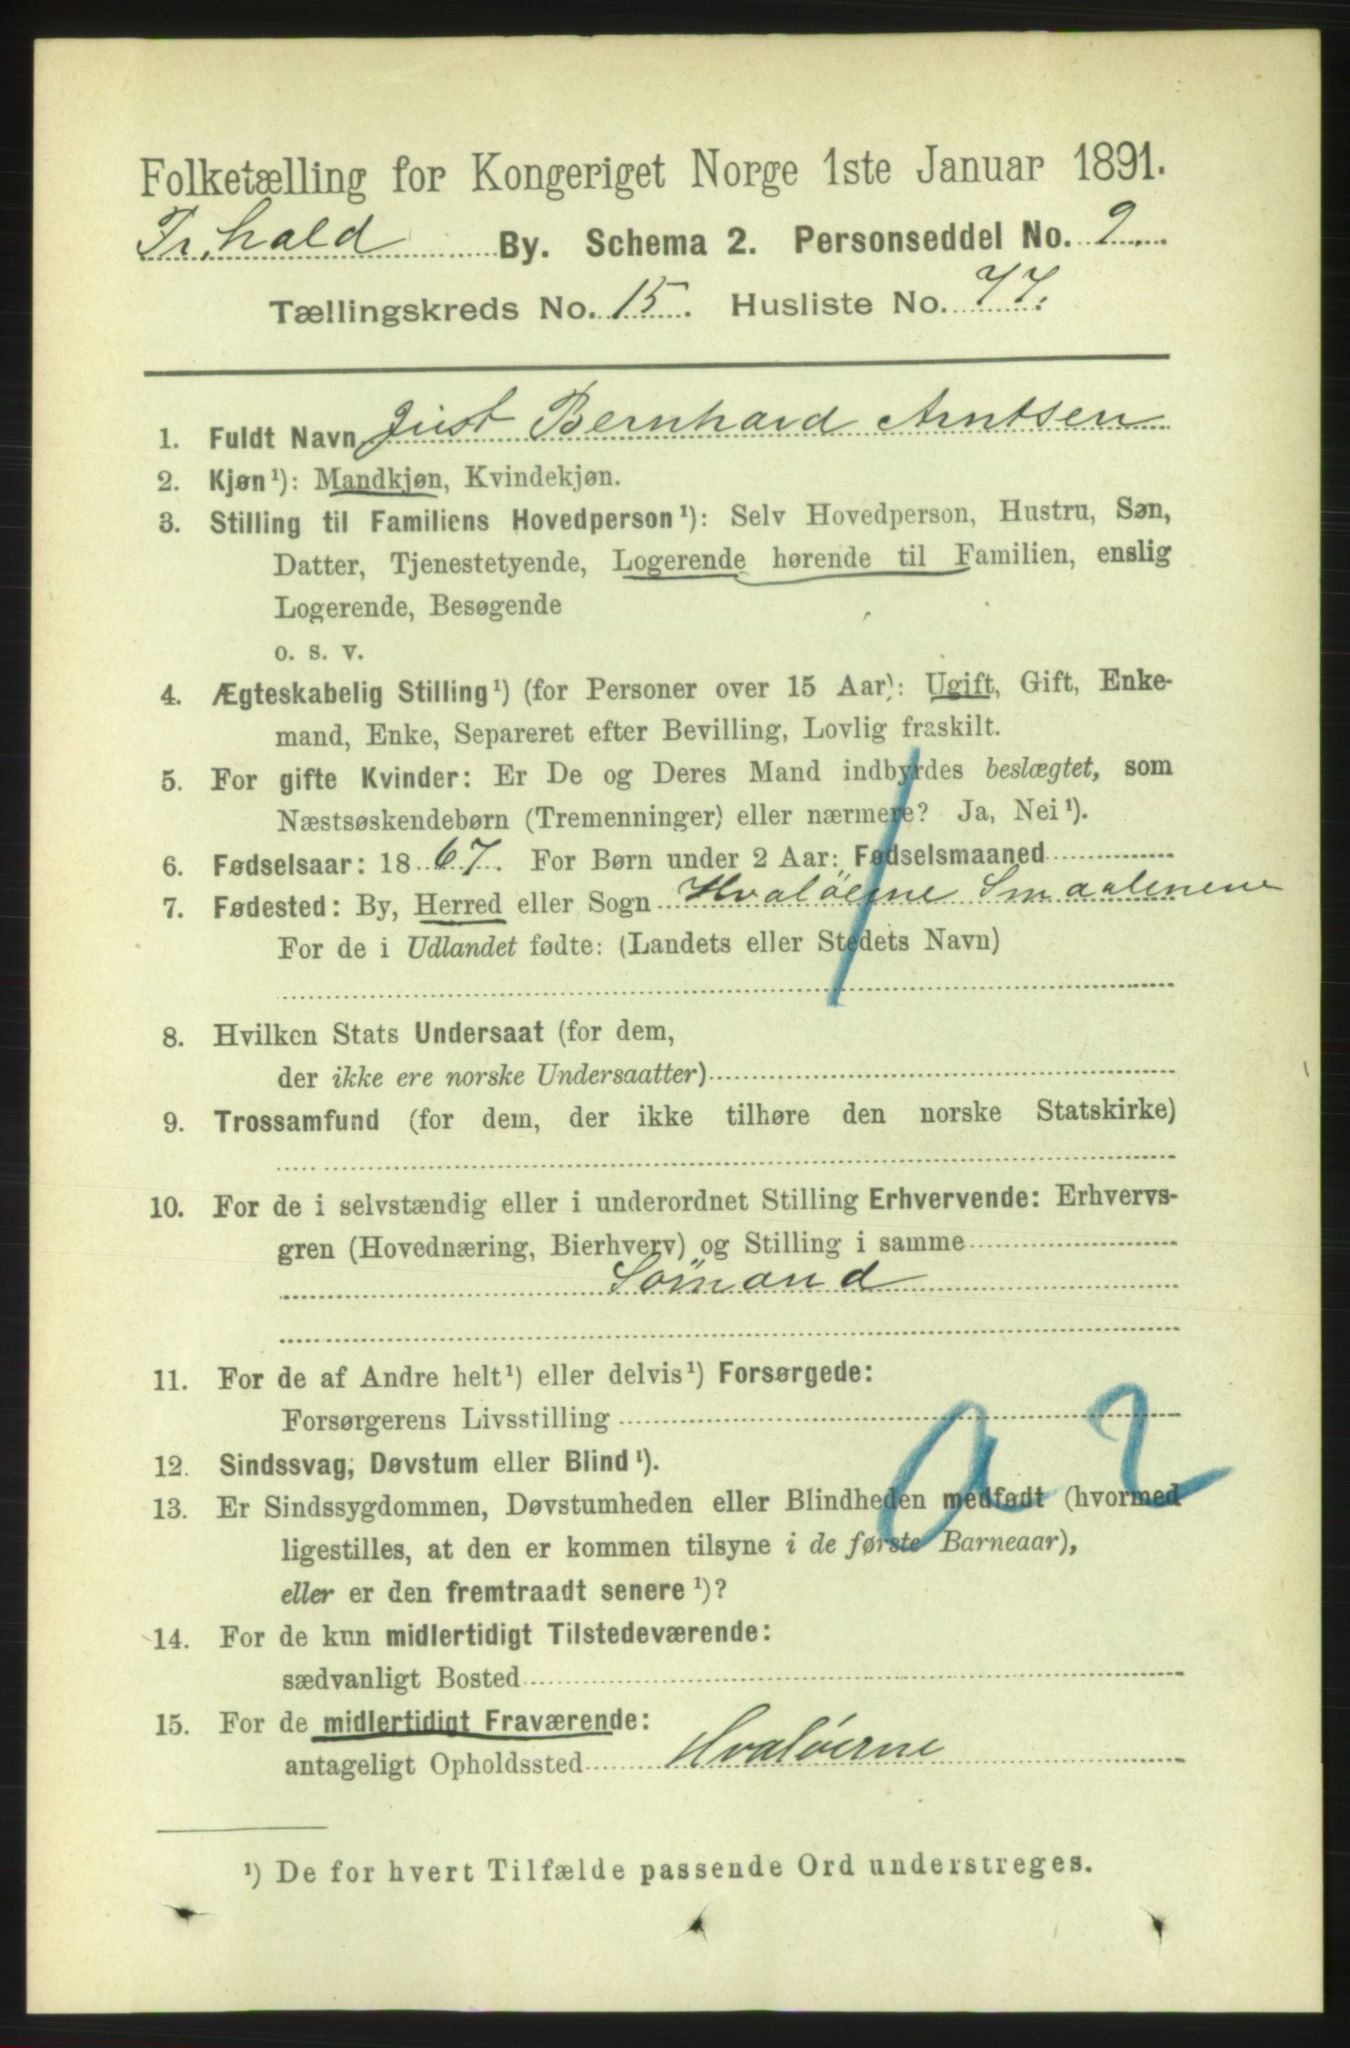 Folketælling for Kongeriget Norge 1ste Januar 1891.
Fr.hald By. Schema 2. Personseddel No. 2.
Tællingskreds No. 15. Husliste No. 77.
1. Fuldt Navn Just Bernhard Arntsen
2. Kjøn¹): Mandkjøn, Kvindekjøn.
3. Stilling til Familiens Hovedperson¹): Selv Hovedperson, Hustru, Søn,
Datter, Tjenestetyende, Logerende hørende til Familien, enslig
Logerende, Besøgende
o. s. v.
4. Ægteskabelig Stilling¹) (for Personer over 15 Aar): Ugift, Gift, Enke-
mand, Enke, Separeret efter Bevilling, Lovlig fraskilt.
5. For gifte Kvinder: Er De og Deres Mand indbyrdes beslægtet, som
Næstsøskendebørn (Tremenninger) eller nærmere? Ja, Nei¹).
6. Fødselsaar: 1867. For Børn under 2 Aar: Fødselsmaaned
7. Fødested: By, Herred eller Sogn Hvaløerne Smaalenene
For de i Udlandet fødte: (Landets eller Stedets Navn)
8. Hvilken Stats Undersaat (for dem,
der ikke ere norske Undersaatter)
9. Trossamfund (for dem, der ikke tilhøre den norske Statskirke)
10. For de i selvstændig eller i underordnet Stilling Erhvervende: Erhvervs-
gren (Hovednæring, Bierhverv) og Stilling i samme
Sømand
11. For de af Andre helt¹) eller delvis¹) Forsørgede:
Forsørgerens Livsstilling
a 2
12. Sindssvag, Døvstum eller Blind¹).
13. Er Sindssygdommen, Døvstumheden eller Blindheden medfødt (hvormed
ligestilles, at den er kommen tilsyne i de første Barneaar),
eller er den fremtraadt senere¹)?
14. For de kun midlertidigt Tilstedeværende:
sædvanligt Bosted
15. For de midlertidigt Fraværende:
antageligt Opholdssted Hvaløerne
¹) De for hvert Tilfælde passende Ord understreges.